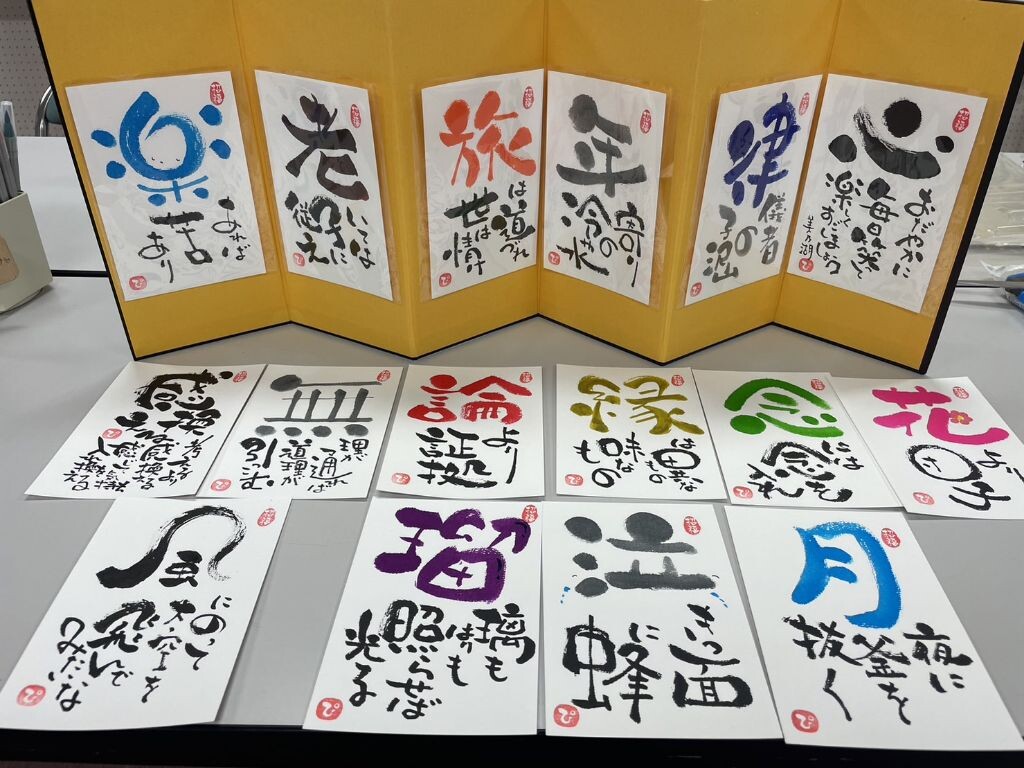 楽
あれば
苦
あり
老
いては
子に
従え
旅
は道づれ
世は情け
年
寄りの
冷や水
律
儀者
の
心
おだやかに
毎日笑って
楽しく
感
無
理が通れば
道理が
引っこむ
論
より
証拠
縁
は異な
もの
味な
もの
念
には
念を
入れ
花
より
団子
風
にのって
大空を
飛んで
みたいな
瑠
璃も
はりも
照らせば
光る
泣
きっ面
に
蜂
月
夜に
釜を
抜く
ぴ